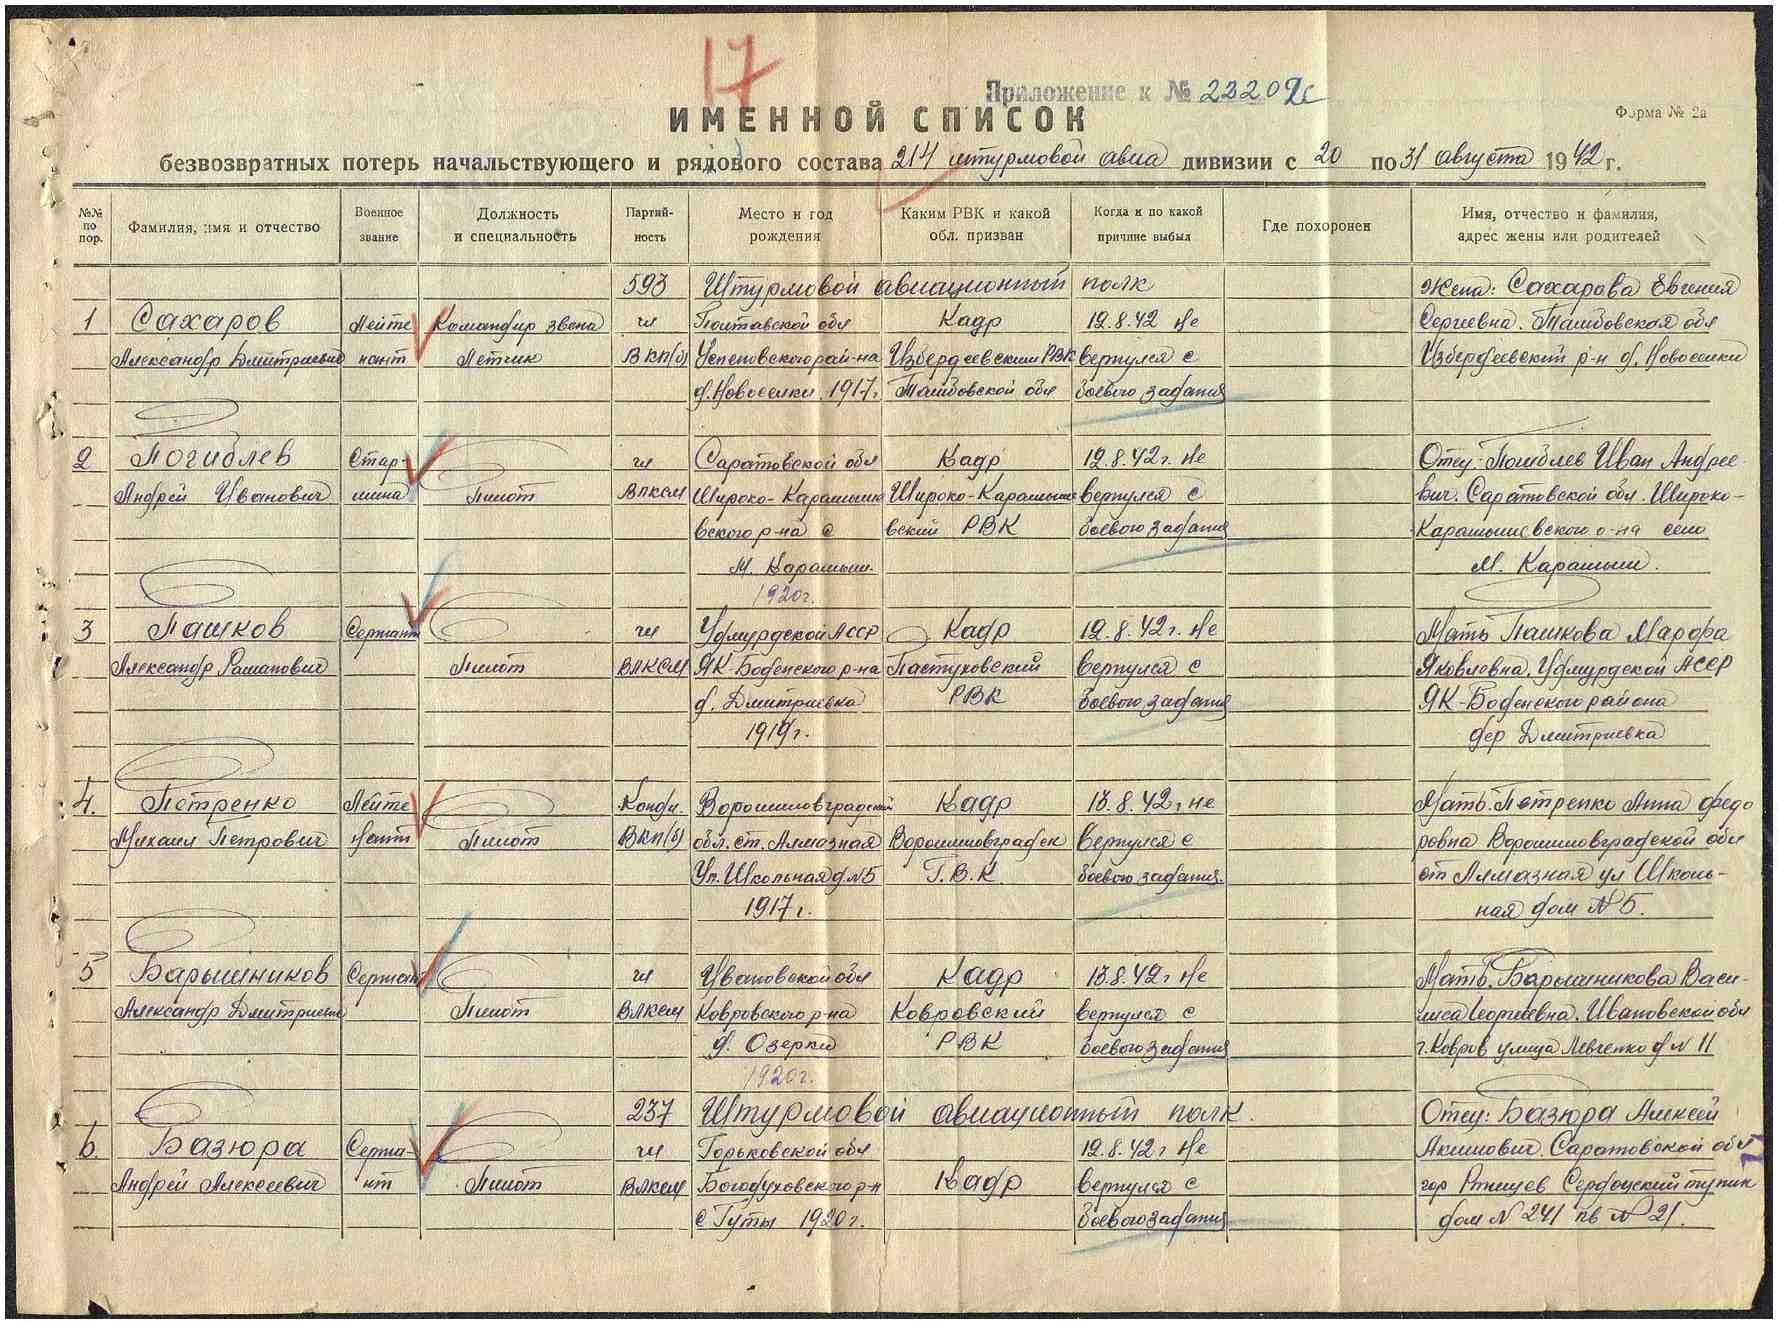 17
Приложение к № 22209с
ИМЕННОЙ СПИСОК
Форма № 2а
безвозвратных потерь начальствующего и рядового состава 214 штурмовой авиа дивизии с 20 по 31 августа 1942 г.
№№ по пор.
Фамилия, имя и отчество
Военное звание
Должность и специальность
Партий-ность
Место и год рождения
Каким РВК и какой обл. призван
Когда и по какой причине выбыл
Где похоронен
Имя, отчество и фамилия, адрес жены или родителей
593 Штурмовой авиационный полк Жена: Сахарова Евгения
1 Сахаров Лейте Командир звена чл Полтавской обл Кадр 12.8.42 Не Сергеевна. Тамбовская обл
Александр Дмитриевич нант Летчик ВКП(б) рай-на Избердеевским РВК вернулся с Избердеевский р-н д. Новоселки
д. Новоселки 1917г Тамбовской обл боевого задания
2 Погиблев Стар- чл Саратовской обл Кадр 12.8.42г. Не Отец: Погиблев Иван Андрее-
Андрей Иванович шина Пилот ВЛКСМ Широко-Карамыше Широко-Карамыше вернулся с вич. Саратовской обл. Широко-
вского р-на с вский РВК боевого задания Карамышевского р-на село
М. Карамыш. М. Карамыш.
1920г.
3 Пашков Сержант чл Удмурдской АССР Кадр 12.8.42г. Не Мать Пашкова Марфа
Александр Раманович Пилот ВЛКСМ ЯК-Боденского р-на Пастуховский вернулся с Яковлевна. Удмурдской АССР
д. Дмитриевка РВК боевого задания ЯК-Боденского района
1919г. дер Дмитриевка
4. Петренко Лейте Канди. Ворошиловградской Кадр 13.8.42г не Мать. Петренко Анна Федо
Михаил Петрович нант Пилот ВКП(б) обл. ст. Алмазная Ворошиловградск вернулся с ровна Ворошиловградской обл
Ул. Школьная д. №5 Г.В.К. боевого задания. ст Алмазная ул Школь-
1917г. ная дом №5.
5 Барышников Сержант чл Ивановской обл Кадр 13.8.42г Не Мать. Барышникова Васи-
Александр Дмитриевич Пилот ВЛКСМ Ковровского р-на Ковровский вернулся с лиса Георгиевна. Ивановской обл
д. Озерки РВК боевого задания г. Ковров улица д № 11
1920г.
237 Штурмовой авиационный полк. Отец: Базюра Алексей
6. Базюра Сержа- чл Горьковской обл 12.8.42г Не Акимович. Саратовской обл
Андрей Алексеевич нт Пилот ВЛКСМ Богодуховского р-н Кадр вернулся с гор Ртищев Сердоцский тупик
с Гуты 1920г. боевого задания дом № 241 кв № 21.